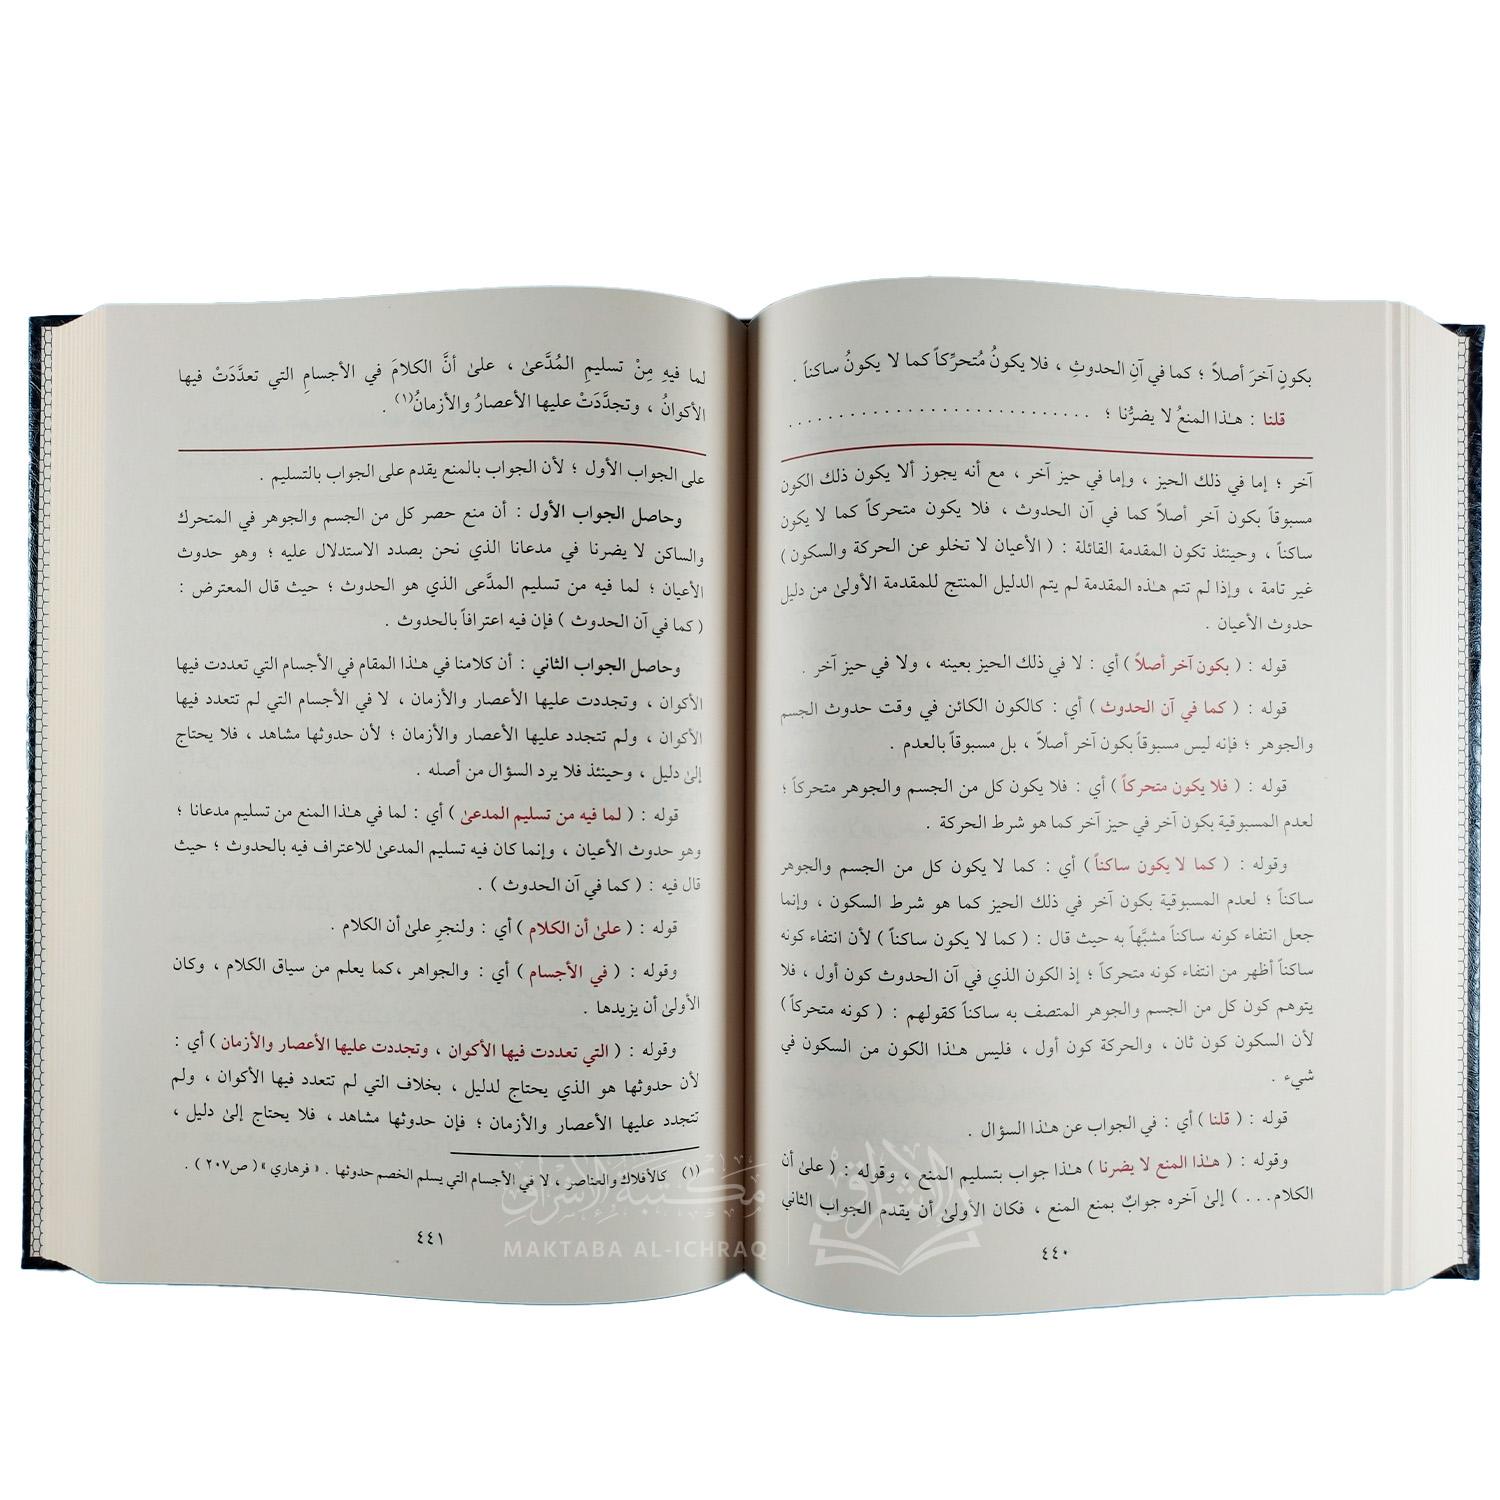 بكونٍ آخرَ أصلاً ؛ كما في آنِ الحدوثِ ، فلا يكونُ مُتحرِّكاً كما لا يكونُ ساكناً .
قلنا : هـٰذا المنعُ لا يضرُّنا ؛ . . . . . . . . . . . . . . . . . . . . . . . . . . .
آخر ؛ إما في ذلك الحيز ، وإما في حيز آخر ، مع أنه يجوز ألا يكون ذلك الكون
مسبوقاً بكون آخر أصلاً كما في آن الحدوث ، فلا يكون متحركاً كما لا يكون
ساكناً ، وحينئذ تكون المقدمة القائلة : ( الأعيان لا تخلو عن الحركة والسكون )
غير تامة ، وإذا لم تتم هـٰذه المقدمة لم يتم الدليل المنتج للمقدمة الأولىٰ من دليل
حدوث الأعيان .
قوله : ( بكون آخر أصلاً ) أي : لا في ذلك الحيز بعينه ، ولا في حيز آخر .
قوله : ( كما في آن الحدوث ) أي : كالكون الكائن في وقت حدوث الجسم
والجوهر ؛ فإنه ليس مسبوقاً بكون آخر أصلاً ، بل مسبوقاً بالعدم .
قوله : ( فلا يكون متحركاً ) أي : فلا يكون كل من الجسم والجوهر متحركاً ؛
لعدم المسبوقية بكون آخر في حيز آخر كما هو شرط الحركة .
وقوله : ( كما لا يكون ساكناً ) أي : كما لا يكون كل من الجسم والجوهر
ساكناً ؛ لعدم المسبوقية بكون آخر في ذلك الحيز كما هو شرط السكون ، وإنما
جعل انتفاء كونه ساكناً مشبَّهاً به حيث قال : ( كما لا يكون ساكناً ) لأن انتفاء كونه
ساكناً أظهر من انتفاء كونه متحركاً ؛ إذ الكون الذي في آن الحدوث كون أول ، فلا
يتوهم كون كل من الجسم والجوهر المتصف به ساكناً كقولهم : ( كونه متحركاً )
لأن السكون كون ثان ، والحركة كون أول ، فليس هـٰذا الكون من السكون في
شيء .
قوله : ( قلنا ) أي : في الجواب عن هـٰذا السؤال .
وقوله : ( هـٰذا المنع لا يضرنا ) هـٰذا جواب بتسليم المنع ، وقوله : ( علىٰ أن
الكلام... ) إلىٰ آخره جوابٌ بمنع المنع ، فكان الأولىٰ أن يقدم الجواب الثاني
٤٤٠
لما فيهِ مِنْ تسليمِ المُدَّعىٰ ، علىٰ أنَّ الكلامَ في الأجسامِ التي تعدَّدَتْ فيها
الأكوانُ ، وتجدَّدَتْ عليها الأعصارُ والأزمانُ(١) .
على الجواب الأول ؛ لأن الجواب بالمنع يقدم على الجواب بالتسليم .
وحاصل الجواب الأول : أن منع حصر كل من الجسم والجوهر في المتحرك
والساكن لا يضرنا في مدعانا الذي نحن بصدد الاستدلال عليه ؛ وهو حدوث
الأعيان ؛ لما فيه من تسليم المدَّعى الذي هو الحدوث ؛ حيث قال المعترض :
( كما في آن الحدوث ) فإن فيه اعترافاً بالحدوث .
وحاصل الجواب الثاني : أن كلامنا في هـٰذا المقام في الأجسام التي تعددت فيها
الأكوان ، وتجددت عليها الأعصار والأزمان ، لا في الأجسام التي لم تتعدد فيها
الأكوان ، ولم تتجدد عليها الأعصار والأزمان ؛ لأن حدوثها مشاهد ، فلا يحتاج
إلىٰ دليل ، وحينئذ فلا يرد السؤال من أصله .
قوله : ( لما فيه من تسليم المدعىٰ ) أي : لما في هـٰذا المنع من تسليم مدعانا ؛
وهو حدوث الأعيان ، وإنما كان فيه تسليم المدعىٰ للاعتراف فيه بالحدوث ؛ حيث
قال فيه : ( كما في آن الحدوث ) .
قوله : ( علىٰ أن الكلام ) أي : ولنجرِ علىٰ أن الكلام .
وقوله : ( في الأجسام ) أي : والجواهر ،كما يعلم من سياق الكلام ، وكان
الأولىٰ أن يزيدها .
وقوله : ( التي تعددت فيها الأكوان ، وتجددت عليها الأعصار والأزمان ) أي :
لأن حدوثها هو الذي يحتاج لدليل ، بخلاف التي لم تتعدد فيها الأكوان ، ولم
تتجدد عليها الأعصار والأزمان ؛ فإن حدوثها مشاهد ، فلا يحتاج إلىٰ دليل ،
(١) كالأفلاك والعناصر ، لا في الأجسام التي يسلم الخصم حدوثها . « فرهاري » ( ص٢٠٧ ) .
٤٤١
مكتبة الإشراق
MAKTABA AL-ICHRAQ
الإشراق